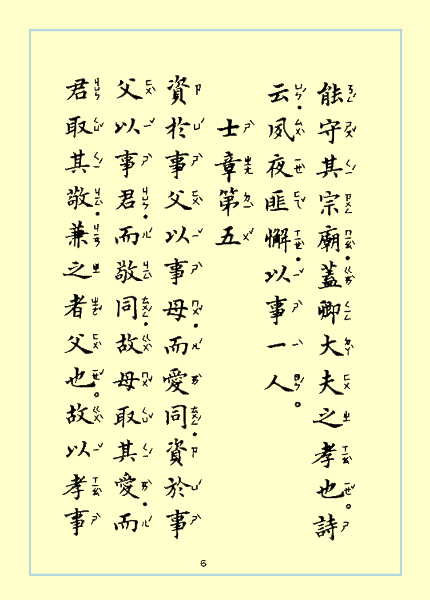 能守其宗廟。蓋卿大夫之孝也。詩
云。夙夜匪懈。以事一人。
士章第五
資於事父以事母。而愛同。資於事
父以事君。而敬同。故母取其愛。而
君取其敬。兼之者父也。故以孝事
6